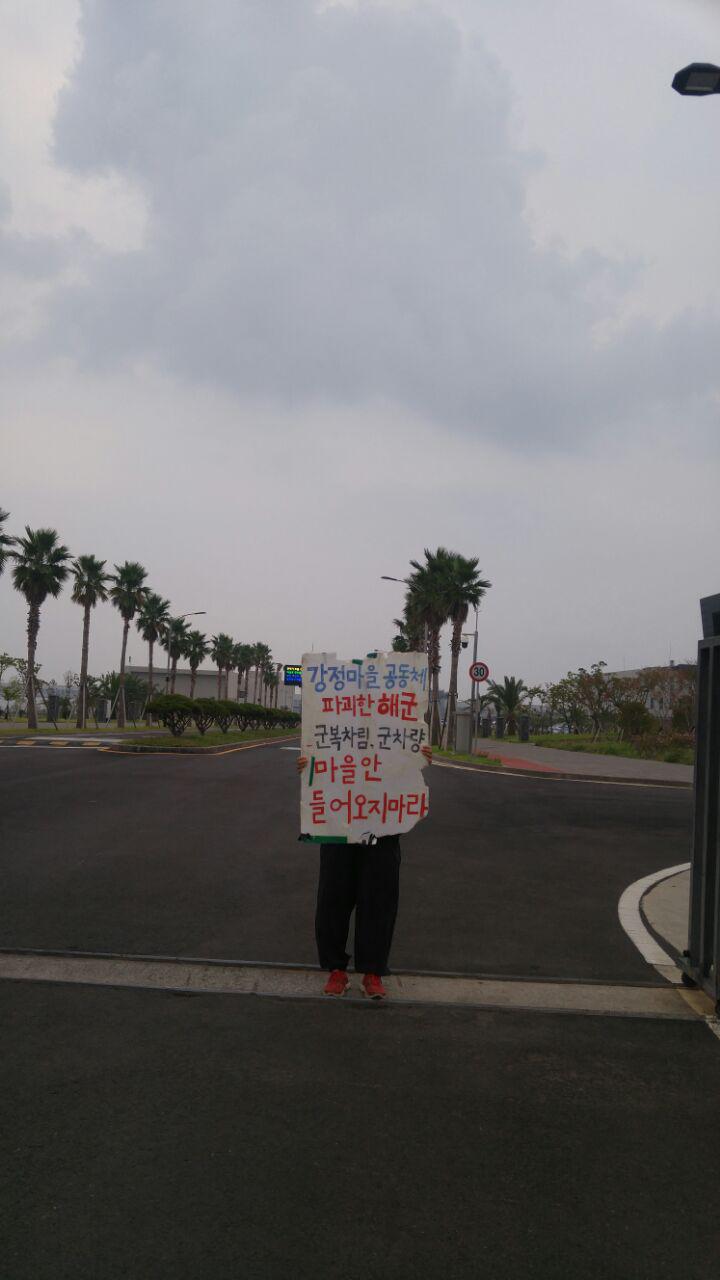 강정마을 공동체
파괴한 해군
군복차림, 군차량
마을안
들어오지마라
30